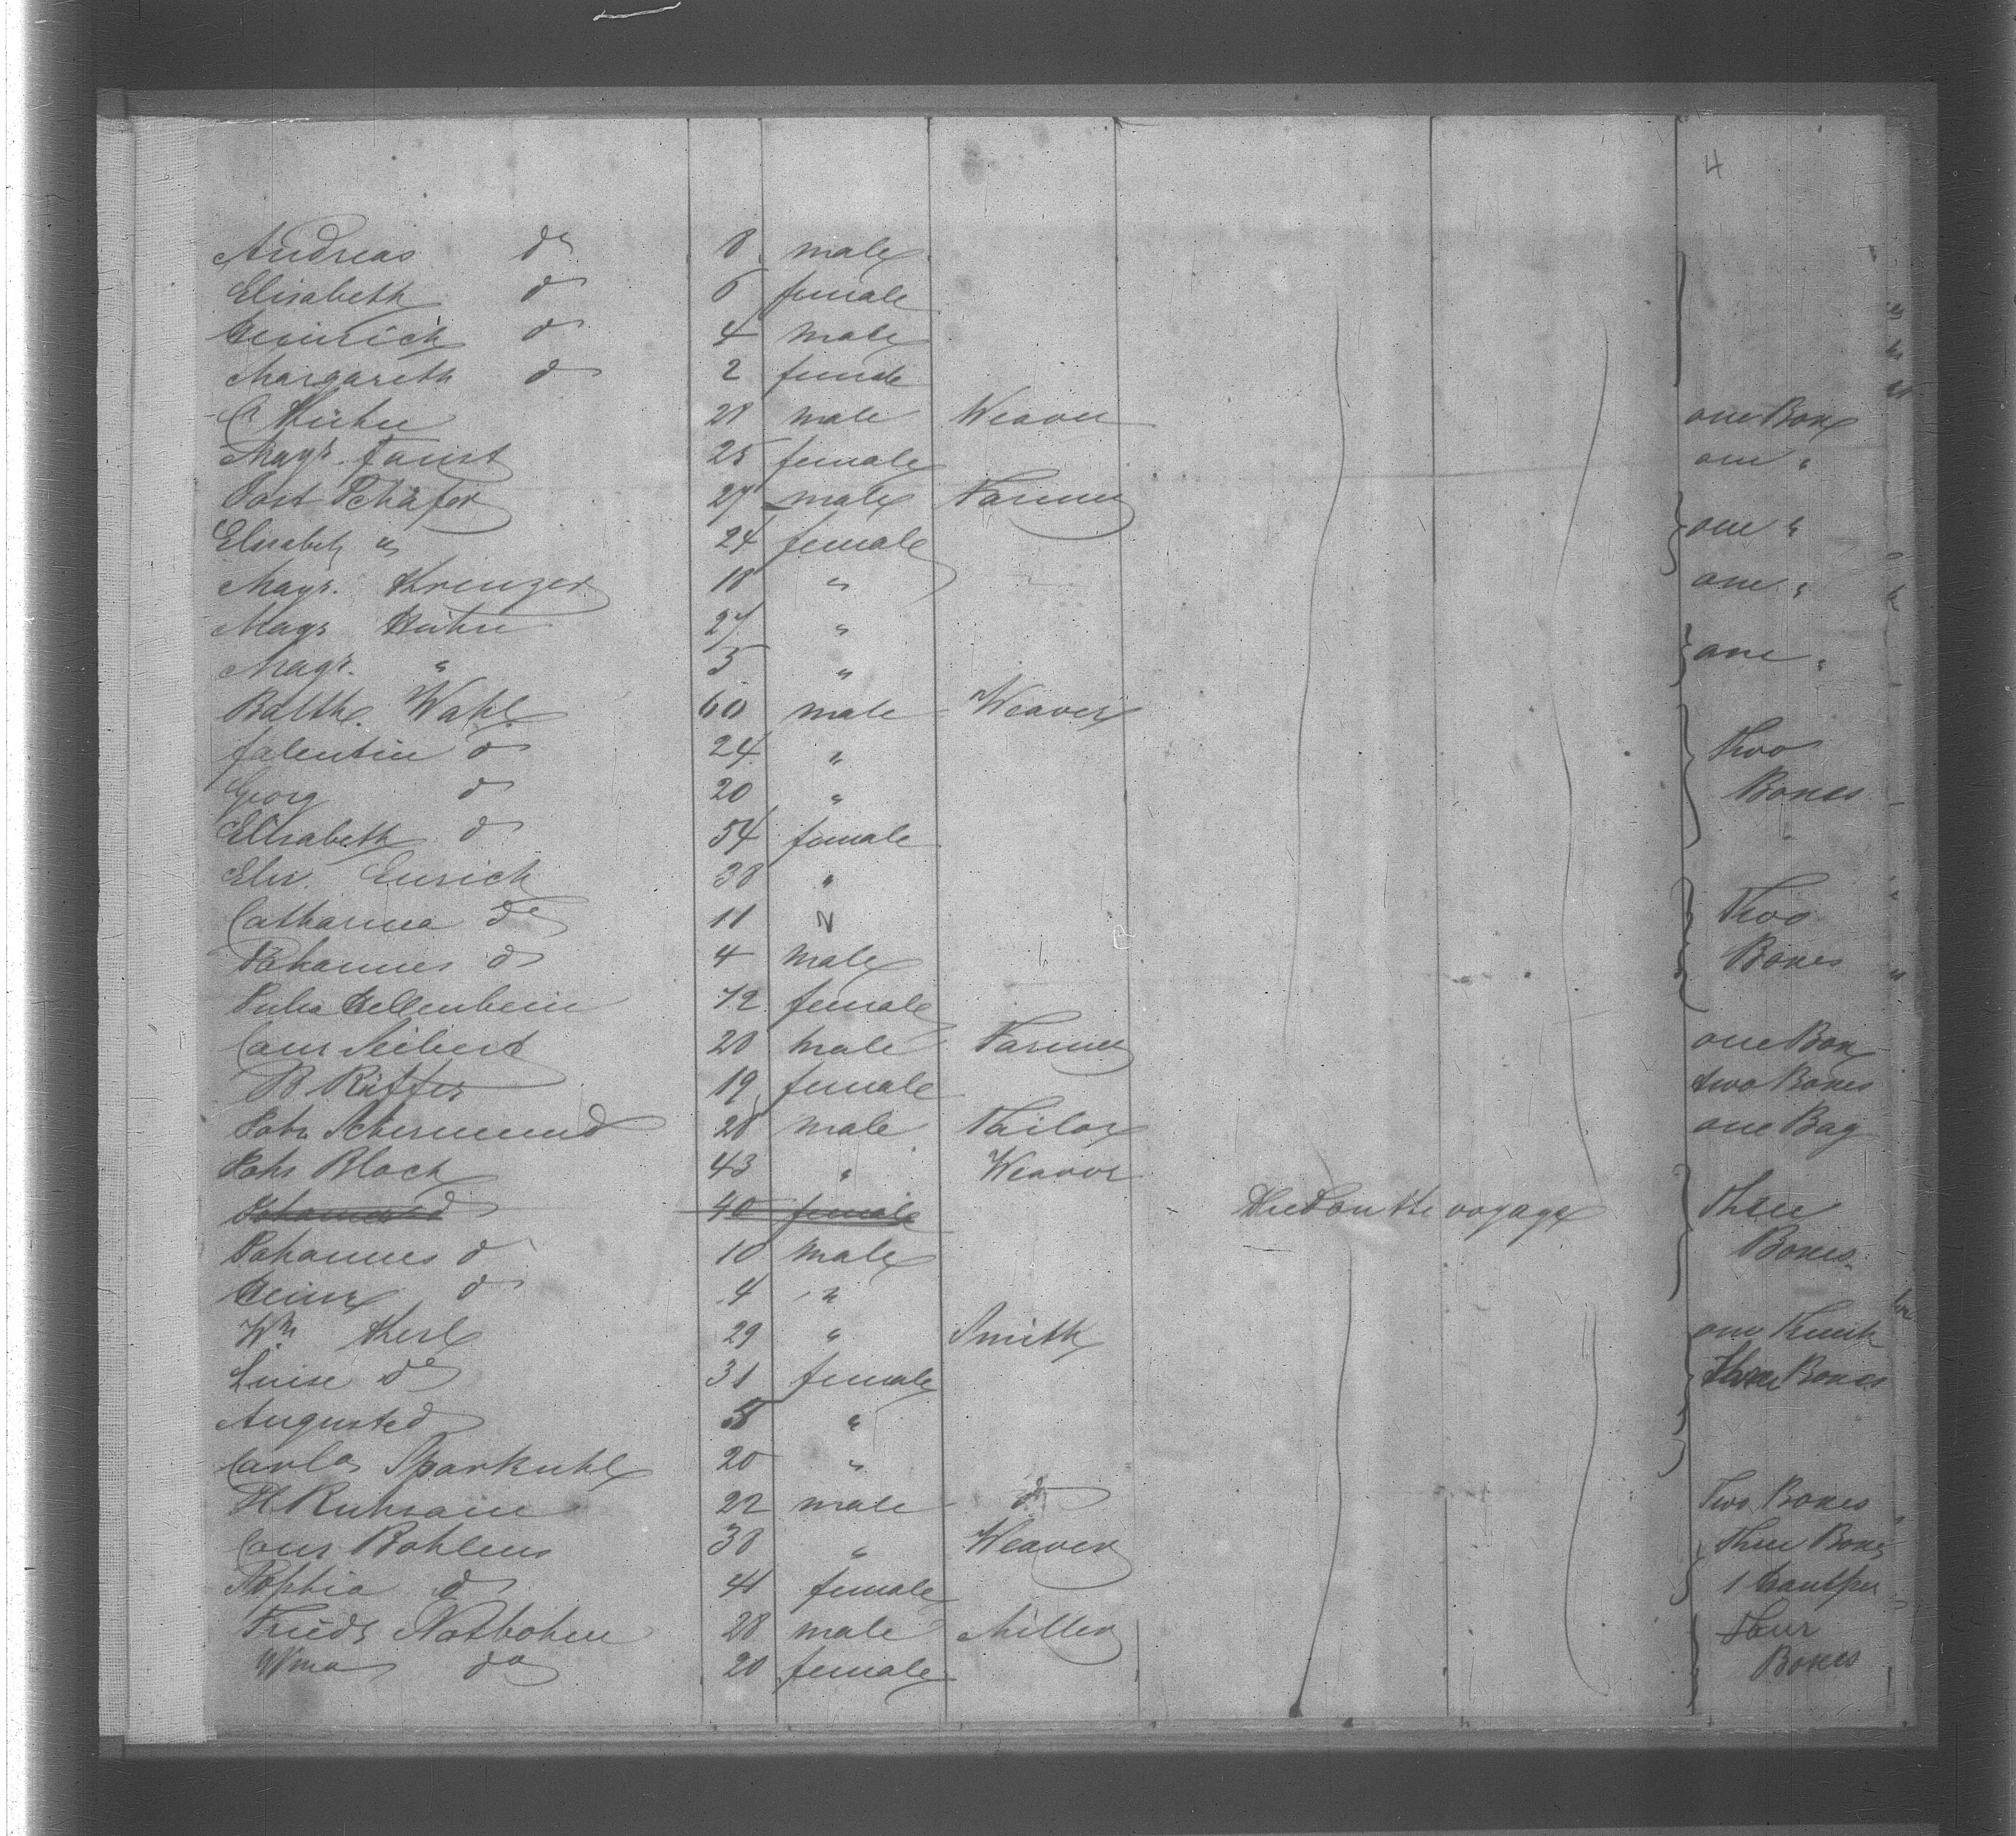 4
Andreas do 8 male
Elisabeth do 6 female
Heinrich do 4 male
Margareth do 2 female
C Kuhn 28 male Weaver one Box
Magr. Faust 25 female one "
Jost Schäfer 27 male Farmer
Elisabeth " 24 female one "
Magr. Kreuzer 18 " one "
Magr Huhn 27 "
Magr. " 5 " one "
Balth. Wahl 60 male Weaver
Valentin do 24 " Two
Georg do 20 " Boxes
Elisabeth do 54 female
Elis. Eurich 38 "
Catharina do 11 " Two
Johannes do 4 male Boxes
Julia Hellenbein 72 female
Conr Seibert 20 male Farmer one Box
B Ritter 19 female two Boxes
Joh. Schirmund 28 male Tailor one Bag
Johs Block 43 " Weaver
do 40 female Died on the voyage Three
Johannes do 10 male Boxes.
Heinr do 4 "
Wm Kesl 29 " Smith one Trunk
Luise do 31 female three Boxes
Auguste do "
Carla Sparkuhl 20 "
H Ruhsam 22 male do Two Boxes
Conr Bohlens 30 " Weaver three Boxes
Sophia do 41 female 1
Friedr Nosbohm 28 male Miller Four
Wma do 20 female Boxes